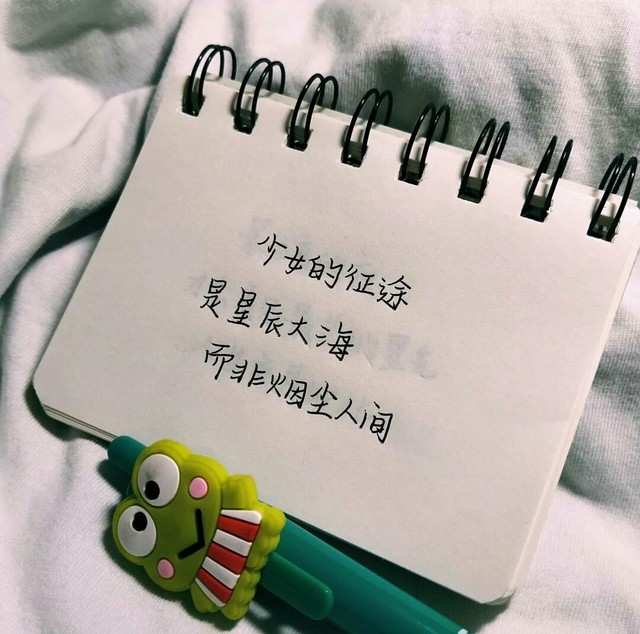 少女的征途
是星辰大海
而非烟尘人间